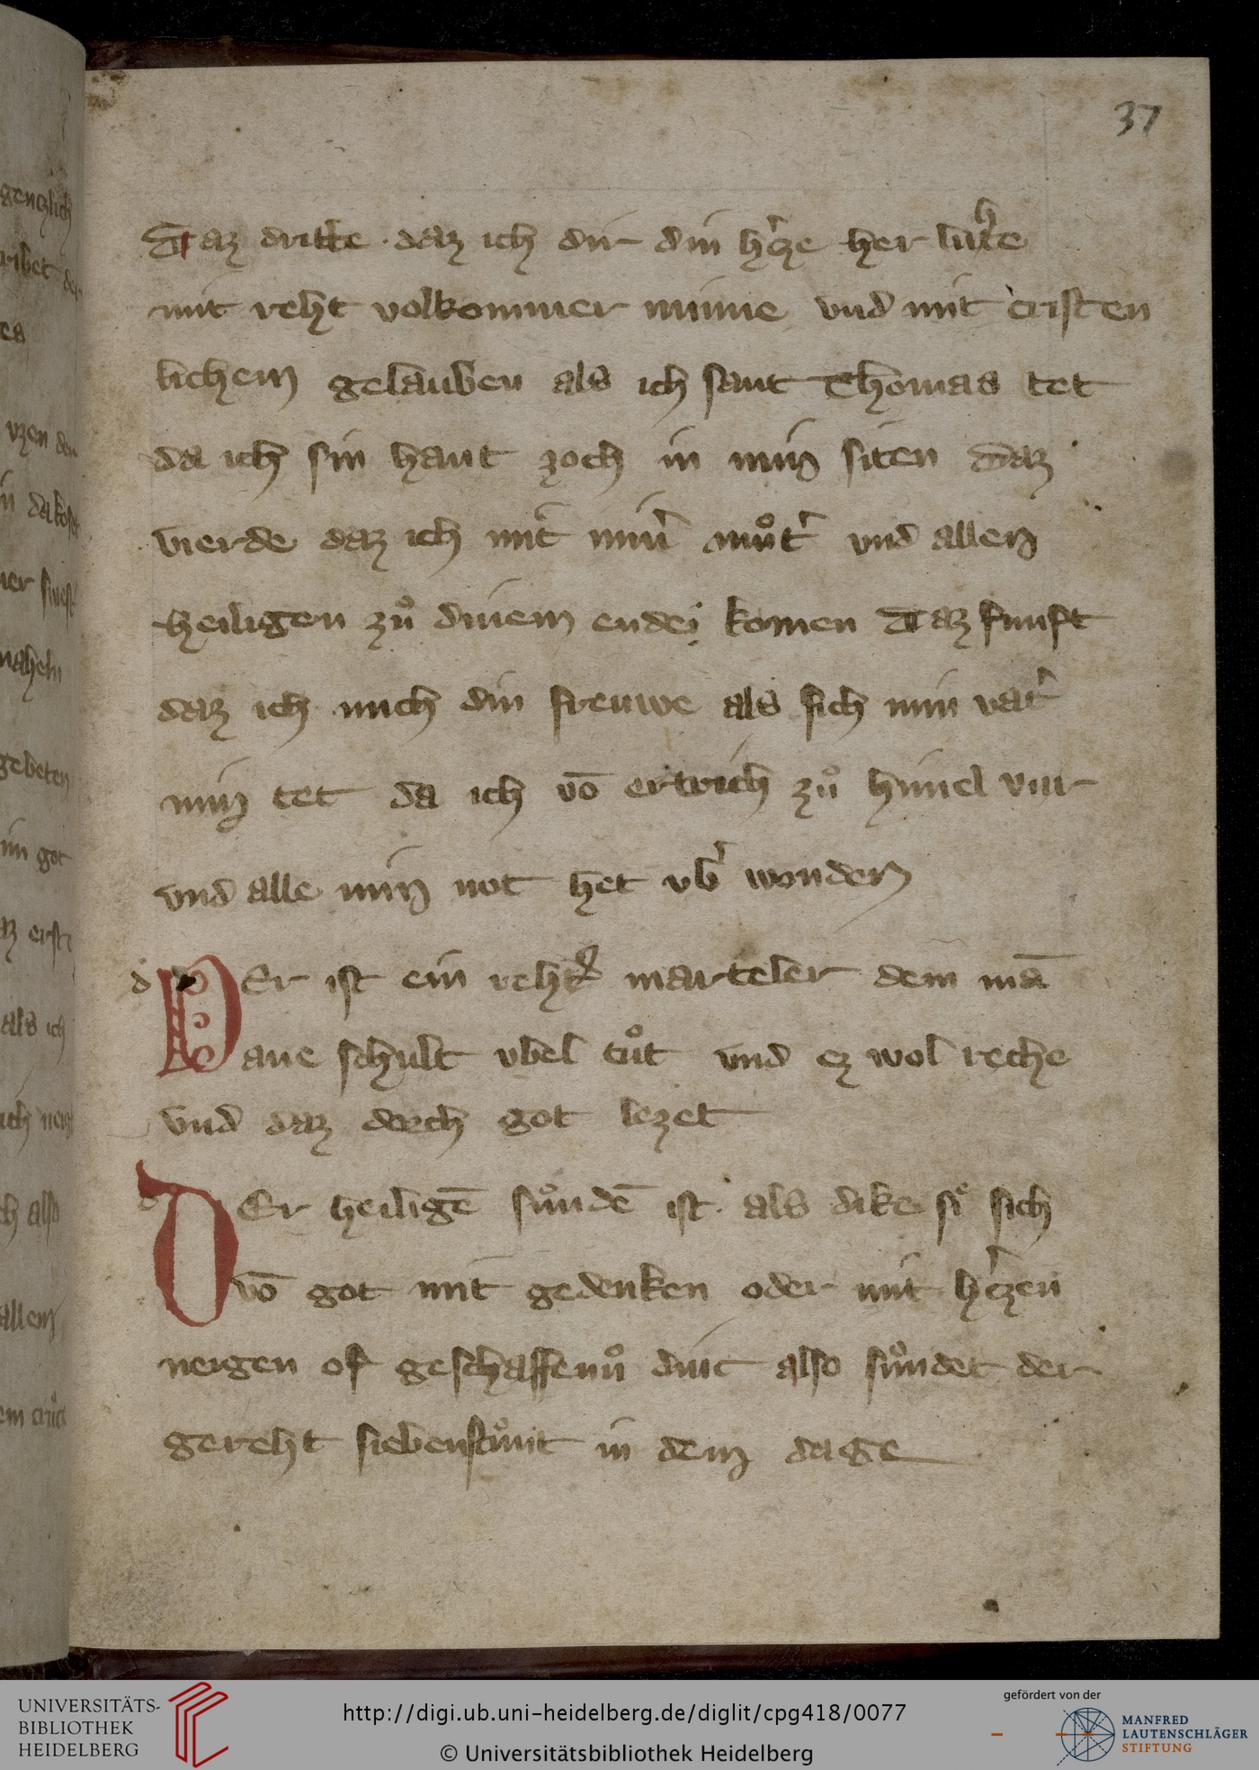 37
Daz dritte daz ich dir din hʼcze her luͤhte
mit reht volkommer minne vnd mit cristen
lichem gelauben als ich sant Thomas tet
da ich sin hant zoch in min siten Daz
vierde daz ich mit minʼ muͦtʼ vnd allen
heiligen zuͦ dinem ende komen Daz funft
daz ich mich din freuwe als sich min vatʼ
min tet da ich vō ertrich zuͦ himel vur
vnd alle min not het vbʼ wonden
DEr ist ein rehtʼ marteler dem mā
ane schult vbel tuͦt vnd ez wol reche
vnd daz dorch got lezet
DEr heiligē suͦndē ist als dike siͤ sich
vō got mit gedenken oder mit hʼczen
neigen of geschaffenuͦ dinc also suͦndet der
gereht siebenstuͦnt in dem dage
UNIVERSITÄTS-
BIBLIOTHEK
HEIDELBERG
http://digi.ub.uni-heidelberg.de/diglit/cpg418/0077
© Universitätsbibliothek Heidelberg
gefördert von der
MANFRED
LAUTENSCHLÄGER
STIFTUNG